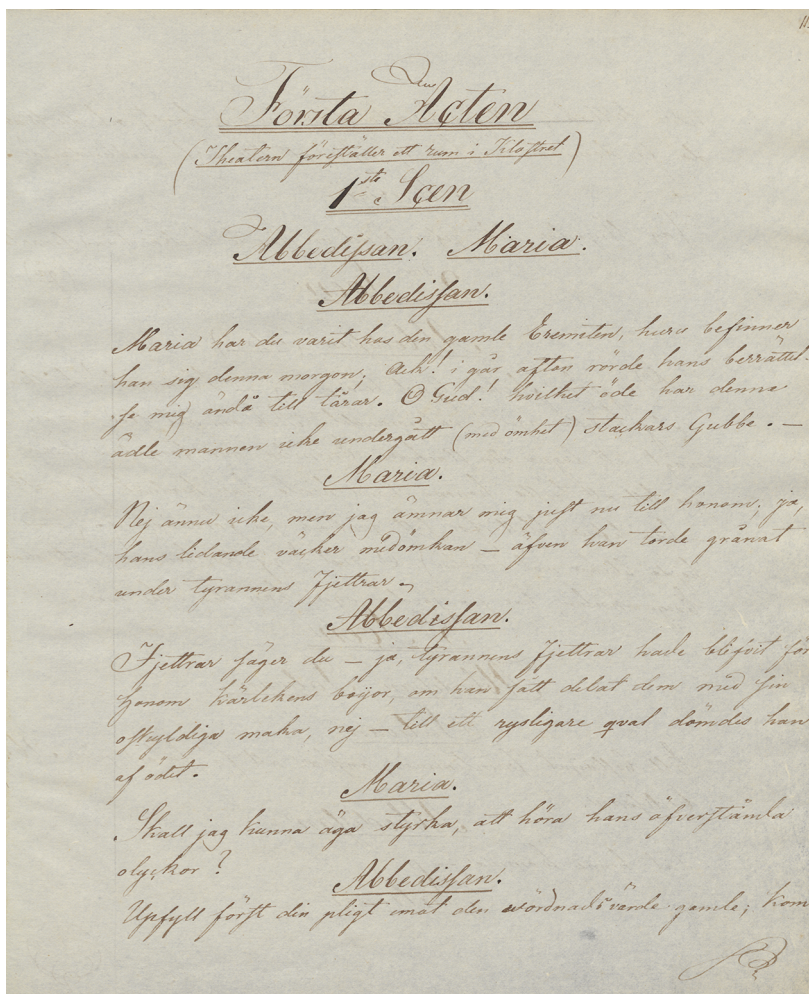 Första Acten
(Theatern föreställer ett rum i Klostret)
1ste Scen
Abbedissan. Maria.
Abbedissan.
Maria har du varit hos den gamle Eremiten, huru befinner
han sig denna morgon; Ack! i går afton rörde hans berrättel-
se mig ända till tårar. O Gud! hvilket öde har denne
ädle mannen icke undergått (med ömhet) stackars Gubbe. —
Maria.
Nej ännu icke, men jag ämnar mig just nu till honom; ja,
hans lidande väcker medömkan — äfven han torde grånat
under tyrannens Fjettrar.
Abbedissan.
Fjettrar säger du — ja, tyrannens Fjettrar hade blifvit för
honom kärlekens bojor, om han fått delat dem med sin
oskyldiga maka, nej — till ett rysligare qval dömdes han
af ödet.
Maria.
Skall jag kunna äga styrka, att höra hans öfverstämla
olyckor?
Abbedissan.
Upfyll först din pligt emot den wördnadsvärde gamle; kom